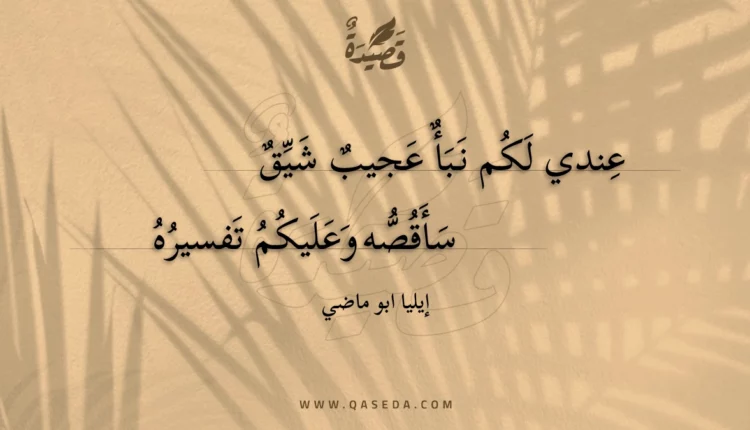 قَصِيْدَةٌ
عِندي لَكُم نَبَأٌ عَجيبٌ شَيِّقٌ
سَأَقُصُّه وَعَلَيكُمُ تَفسيرُهُ
إيليا ابو ماضي
WWW.QASEDA.COM